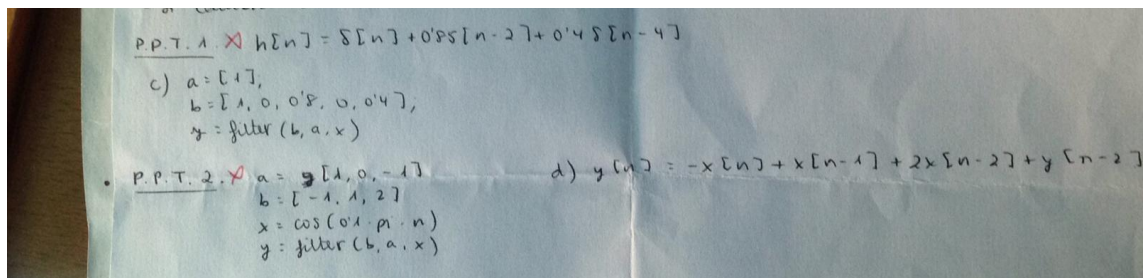 P.P.T. 1. X h[n] = δ[n] + 0'8δ[n-2] + 0'4 δ[n-4]
c) a = [1],
b = [1, 0, 0'8, 0, 0'4],
y = filter (b, a, x)
P.P.T. 2. X a = [1, 0, -1]
b = [-1, 1, 2]
x = cos(0'1 · pi · n)
y = filter (b, a, x)
d) y[n] = -x[n] + x[n-1] + 2x[n-2] + y[n-2]